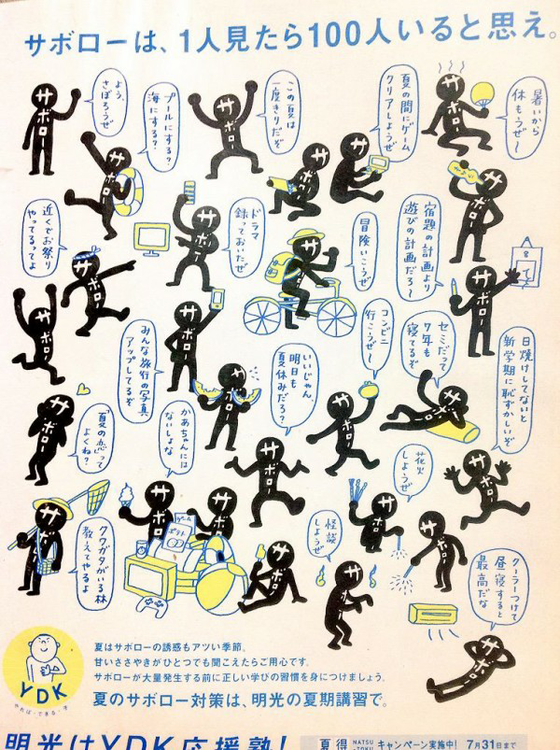 サボローは、1人見たら100人いると思え。
よう、
さぼろうぜ
プールにする?
海にする?
この夏は
一度きりだぞ
夏の間にゲーム
クリアしようぜ
暑いから
休もうぜ〜
近くでお祭り
やってるってよ
ドラマ
録っておいたぜ
冒険いこうぜ
宿題の計画より
遊びの計画だろ〜
みんな旅行の写真
アップしてるぞ
いいじゃん、
明日も
夏休みだろ?
コンビニ
行こうぜ〜
セミだって
7年も
寝てるぞ
日焼けしてないと
新学期に恥ずかしいぞ
夏の恋って
よくね?
かあちゃんには
ないしょな
花火
しようぜ
怪談
しようぜ
クワガタがいる林
教えてやるよ
クーラーつけて
昼寝すると
最高だな
サボロー
サボロー
サボロー
サボロー
サボロー
サボロー
サボロー
サボロー
サボロー
サボロー
サボロー
サボロー
サボロー
サボロー
ゲーム
ポテト
8
YDK
やれば・できる・子
夏はサボローの誘惑もアツい季節。
甘いささやきがひとつでも聞こえたらご用心です。
サボローが大量発生する前に正しい学びの習慣を身につけましょう。
夏のサボロー対策は、明光の夏期講習で。
明光はYDK応援塾!
夏得
NATSU
-TOKU
キャンペーン実施中! 7月31日まで